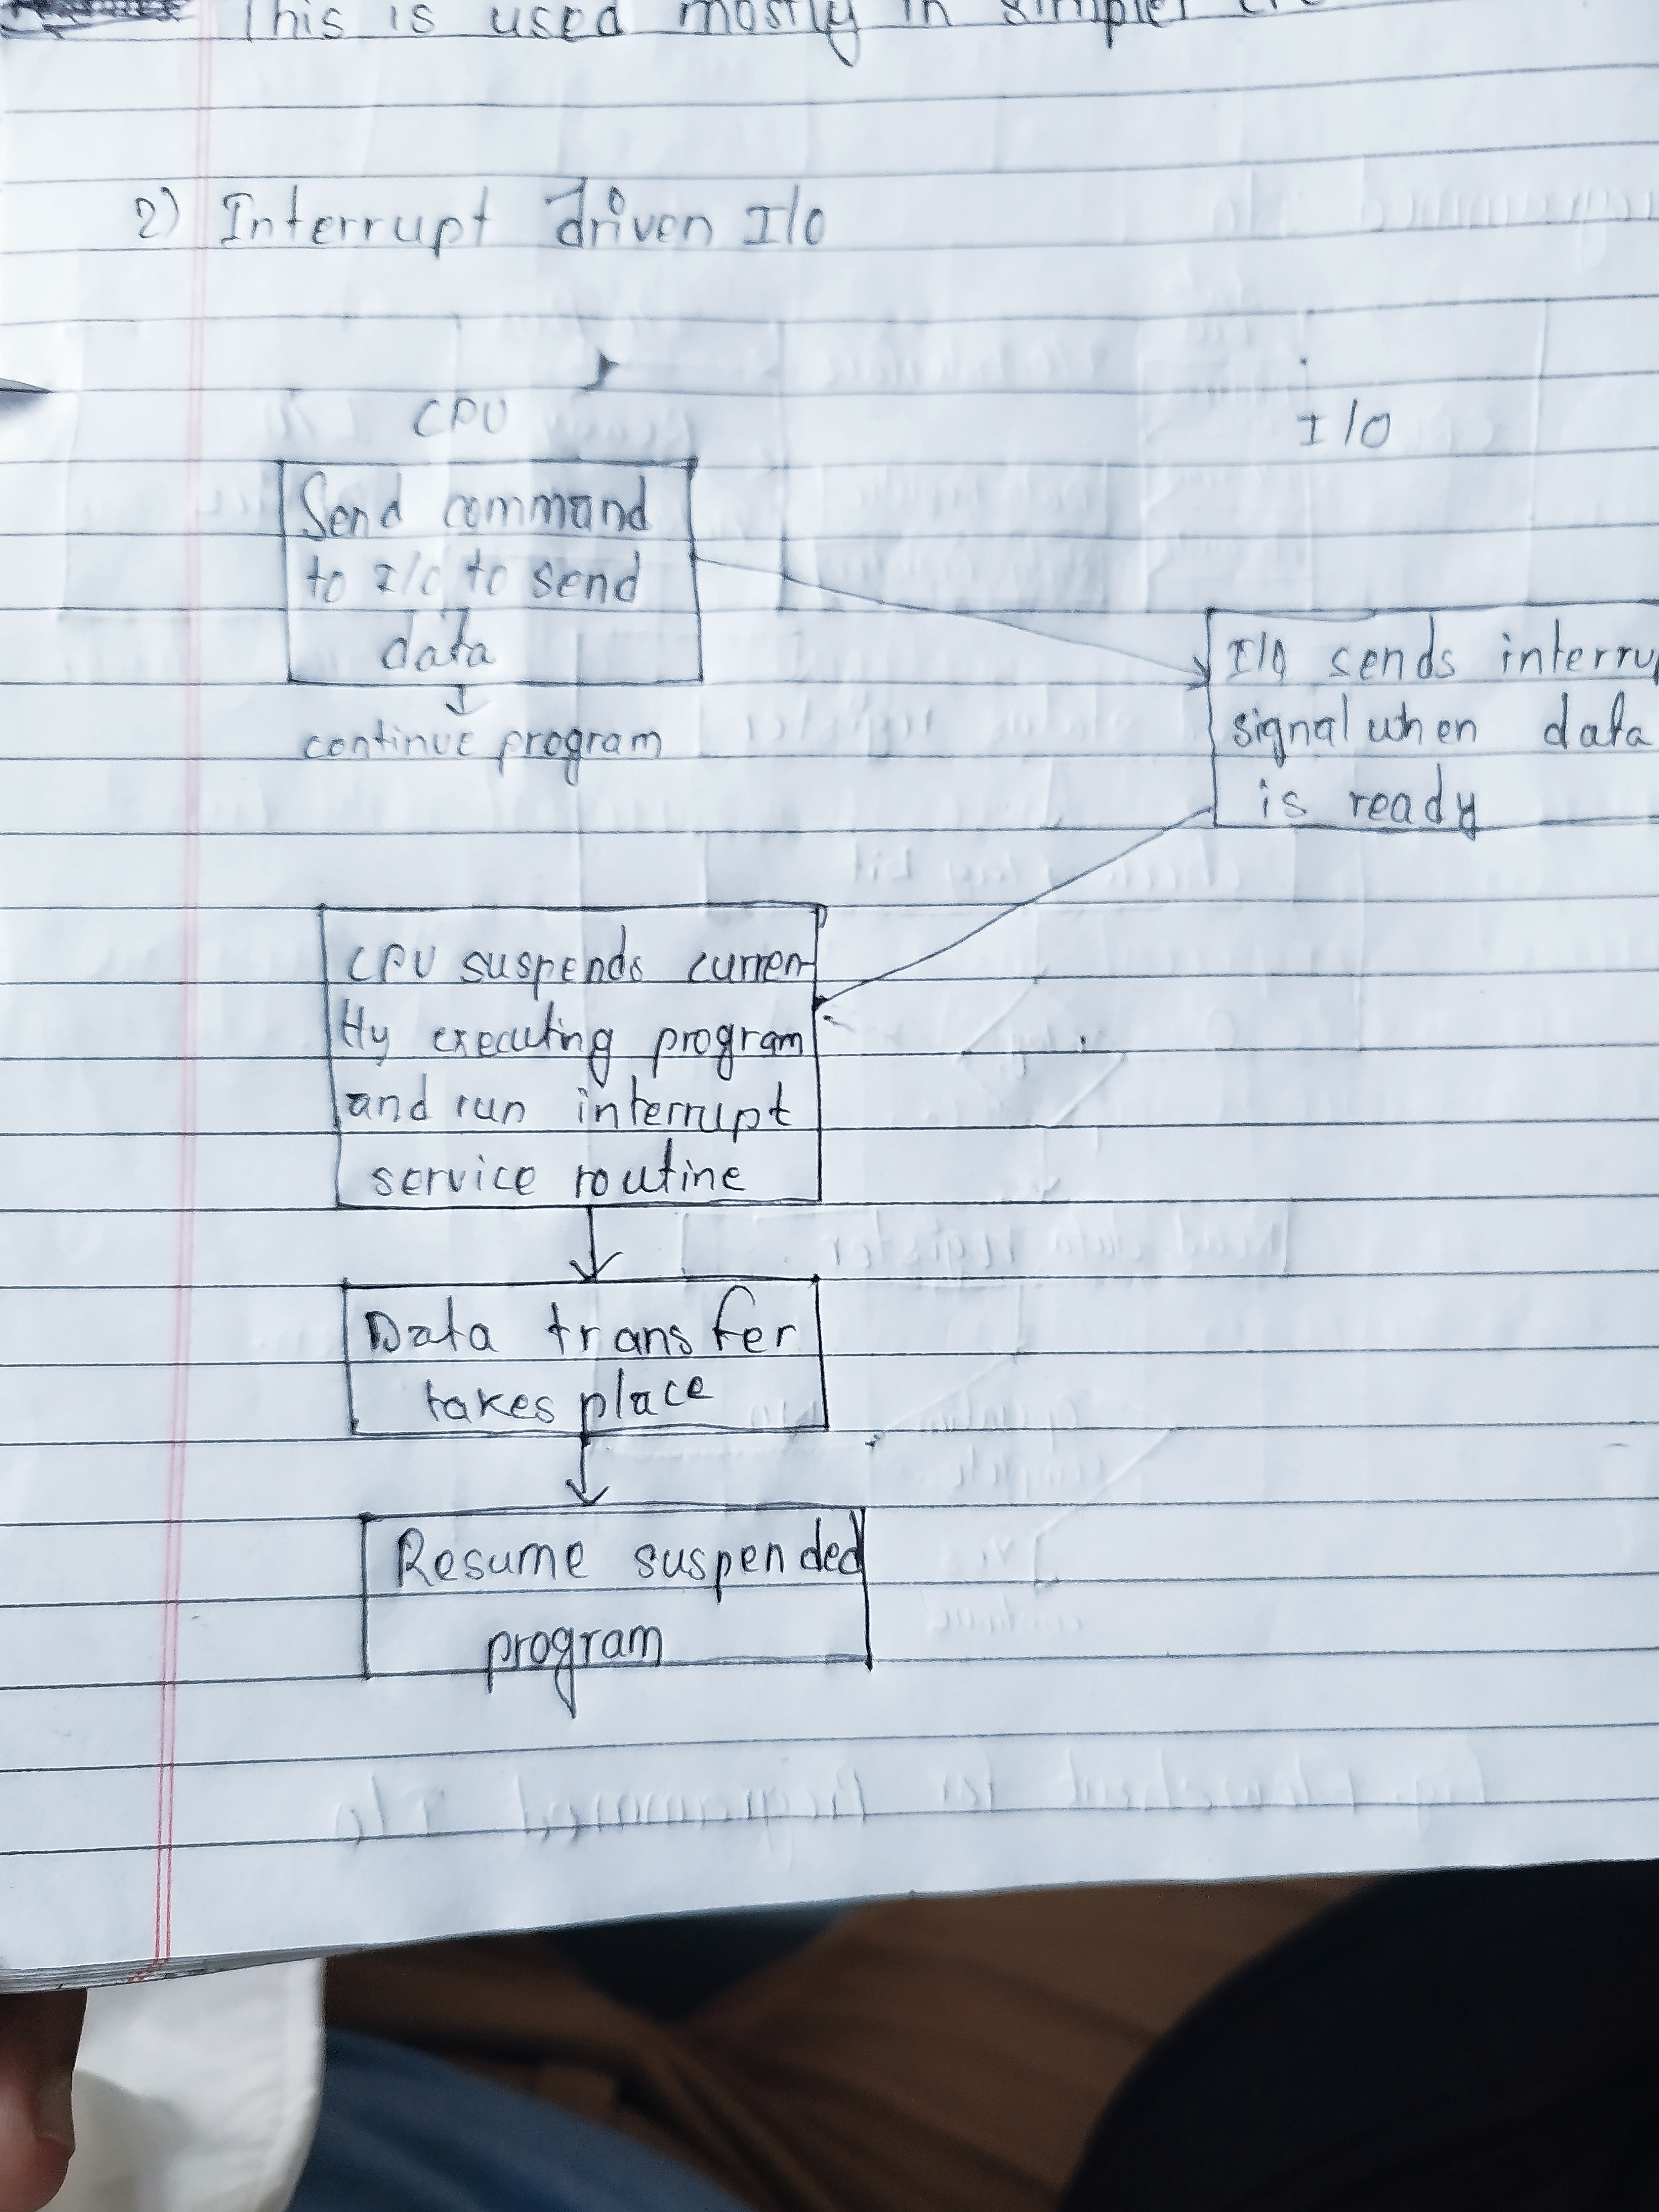 This is used mostly in simpler
2) Interrupt driven I/O
CPU
I/O
Send command
to I/O to send
data
continue program
I/O sends interru
signal when data
is ready
CPU suspends curren
tly executing program
and run interrupt
service routine
Data transfer
takes place
Resume suspended
program